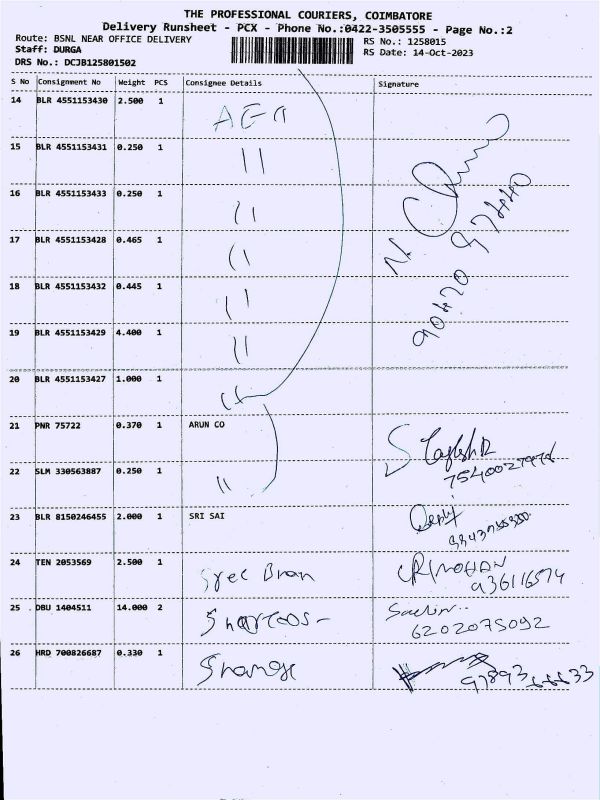 THE PROFESSIONAL COURIERS, COIMBATORE
Delivery Runsheet - PCX - Phone No.:0422-3505555 - Page No.:2
Route: BSNL NEAR OFFICE DELIVERY
RS No.: 1258015
Staff: DURGA
RS Date: 14-Oct-2023
DRS No.: DCJB125801502
S No Consignment No Weight PCS Consignee Details Signature
14 BLR 4551153430 2.500 1
15 BLR 4551153431 0.250 1 11
16 BLR 4551153433 0.250 1 11
17 BLR 4551153428 0.465 1 11
18 BLR 4551153432 0.445 1 11
19 BLR 4551153429 4.400 1 11
20 BLR 4551153427 1.000 1 11
21 PNR 75722 0.370 1 ARUN CO
22 SLM 330563887 0.250 1 11
23 BLR 8150246455 2.000 1 SRI SAI
24 TEN 2053569 2.500 1
25 DBU 1404511 14.000 2 Sachin..
6202075092
26 HRD 700826687 0.330 1